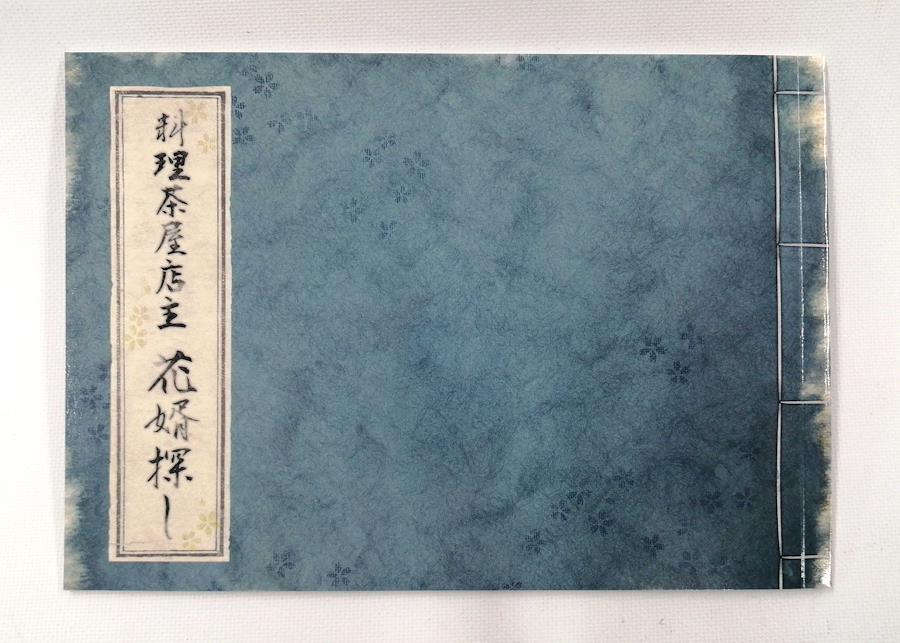 料理茶屋店主 花婿探し